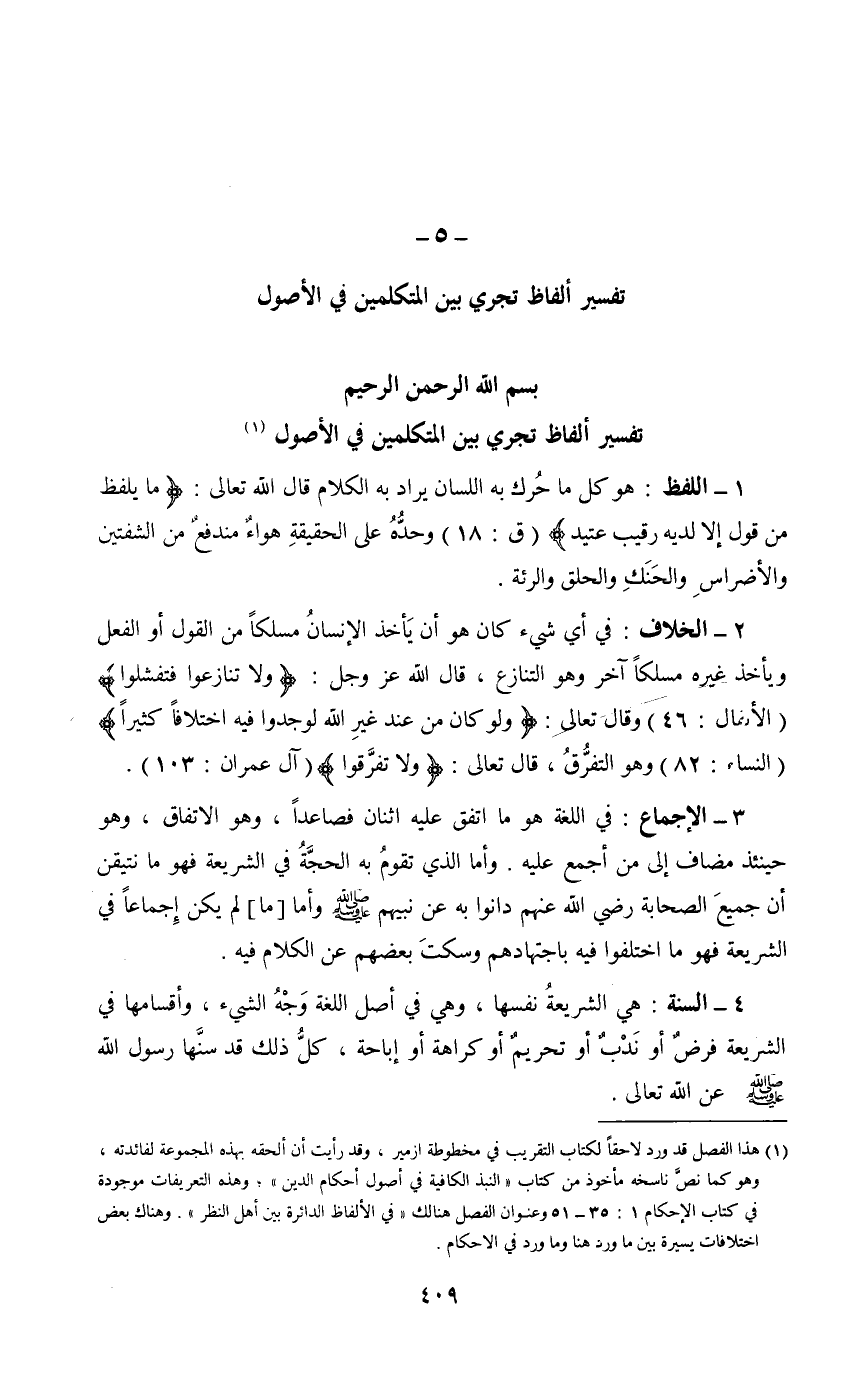 ـ ٥ ـ
تفسير ألفاظ تجري بين المتكلمين في الأصول
بسم الله الرحمن الرحيم
تفسير ألفاظ تجري بين المتكلمين في الأصول (١)
١ ـ اللفظ : هو كل ما حُرك به اللسان يراد به الكلام قال الله تعالى : ﴿ ما يلفظ
من قول إلا لديه رقيب عتيد ﴾ ( ق : ١٨ ) وحدُّهُ على الحقيقةِ هواءٌ مندفعٌ من الشفتين
والأضراسِ والحَنَكِ والحلق والرئة .
٢ ـ الخلاف : في أي شيء كان هو أن يَأخذ الإنسانُ مسلكاً من القول أو الفعل
ويأخذ غيره مسلكاً آخر وهو التنازع ، قال الله عز وجل : ﴿ ولا تنازعوا فتفشلوا ﴾
( الأنفال : ٤٦ ) وقال تعالى : ﴿ ولو كان من عند غيرِ الله لوجدوا فيه اختلافاً كثيراً ﴾
( النساء : ٨٢ ) وهو التفرُّقُ ، قال تعالى : ﴿ ولا تفرَّقوا ﴾ ( آل عمران : ١٠٣ ) .
٣ ـ الإجماع : في اللغة هو ما اتفق عليه اثنان فصاعداً ، وهو الاتفاق ، وهو
حينئذ مضاف إلى من أجمع عليه . وأما الذي تقومُ به الحجَّةُ في الشريعة فهو ما نتيقن
أن جميعَ الصحابة رضي الله عنهم دانوا به عن نبيهم ﷺ وأما [ ما ] لم يكن إجماعاً في
الشريعة فهو ما اختلفوا فيه باجتهادهم وسكتَ بعضهم عن الكلام فيه .
٤ ـ السنة : هي الشريعةُ نفسها ، وهي في أصل اللغة وَجْهُ الشيء ، وأقسامها في
الشريعة فرضٌ أو نَدْبٌ أو تحريمٌ أو كراهة أو إباحة ، كلُّ ذلك قد سنَّها رسول الله
ﷺ عن الله تعالى .
(١) هذا الفصل قد ورد لاحقاً لكتاب التقريب في مخطوطة ازمير ، وقد رأيت أن ألحقه بهذه المجموعة لفائدته ،
وهو كما نصَّ ناسخه مأخوذ من كتاب « النبذ الكافية في أصول أحكام الدين » ؛ وهذه التعريفات موجودة
في كتاب الإحكام ١ : ٣٥ ـ ٥١ وعنوان الفصل هنالك « في الألفاظ الدائرة بين أهل النظر » . وهناك بعض
اختلافات يسيرة بين ما ورد هنا وما ورد في الاحكام .
٤٠٩